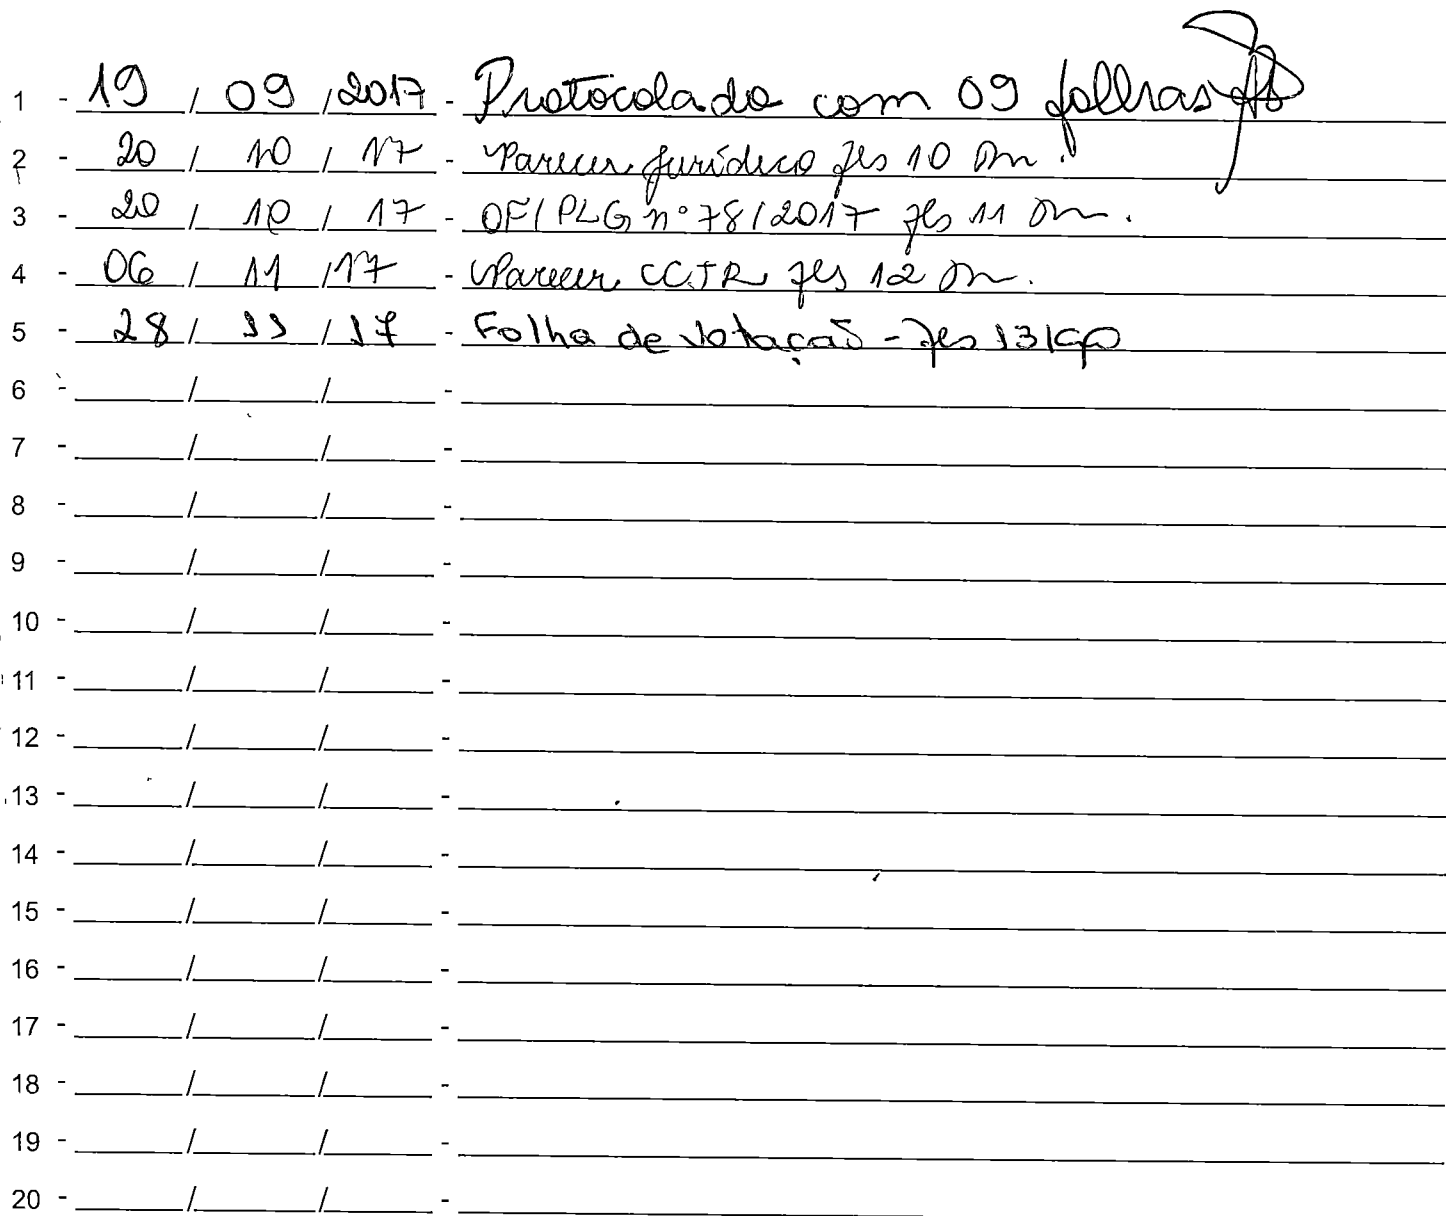 1 - 19 / 09 / 2017 - Protocolado com 09 folhas
2 - 20 / 10 / 17 - Parecer Jurídico fls 10
3 - 20 / 10 / 17 - OF/PLG nº 78/2017 fls 11
4 - 06 / 11 / 17 - Parecer CCJR fls 12
5 - 28 / 11 / 17 - Folha de Votação - fls 13
6 - ____/____/____ -
7 - ____/____/____ -
8 - ____/____/____ -
9 - ____/____/____ -
10 - ____/____/____ -
11 - ____/____/____ -
12 - ____/____/____ -
13 - ____/____/____ -
14 - ____/____/____ -
15 - ____/____/____ -
16 - ____/____/____ -
17 - ____/____/____ -
18 - ____/____/____ -
19 - ____/____/____ -
20 - ____/____/____ -